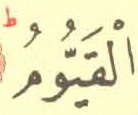 الْقَيُّوْمُ